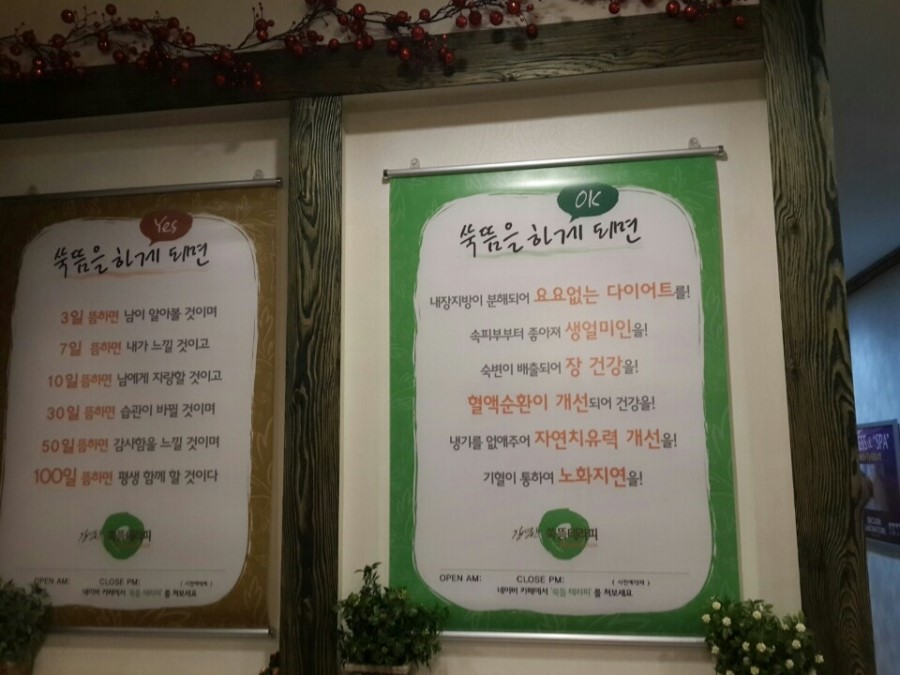 Yes
쑥뜸을 하게 되면
3일 뜸하면 남이 알아볼 것이며
7일 뜸하면 내가 느낄 것이고
10일 뜸하면 남에게 자랑할 것이고
30일 뜸하면 습관이 바뀔 것이며
50일 뜸하면 감사함을 느낄 것이며
100일 뜸하면 평생 함께 할 것이다
쑥뜸테라피
OPEN AM: CLOSE PM: (사전예약제)
네이버 카페에서 '쑥뜸 테라피'를 쳐보세요
OK
쑥뜸을 하게 되면
내장지방이 분해되어 요요없는 다이어트를!
속피부부터 좋아져 생얼미인을!
숙변이 배출되어 장 건강을!
혈액순환이 개선되어 건강을!
냉기를 없애주어 자연치유력 개선을!
기혈이 통하여 노화지연을!
쑥뜸테라피
OPEN AM: CLOSE PM: (사전예약제)
네이버 카페에서 '쑥뜸 테라피'를 쳐보세요
"SPA"